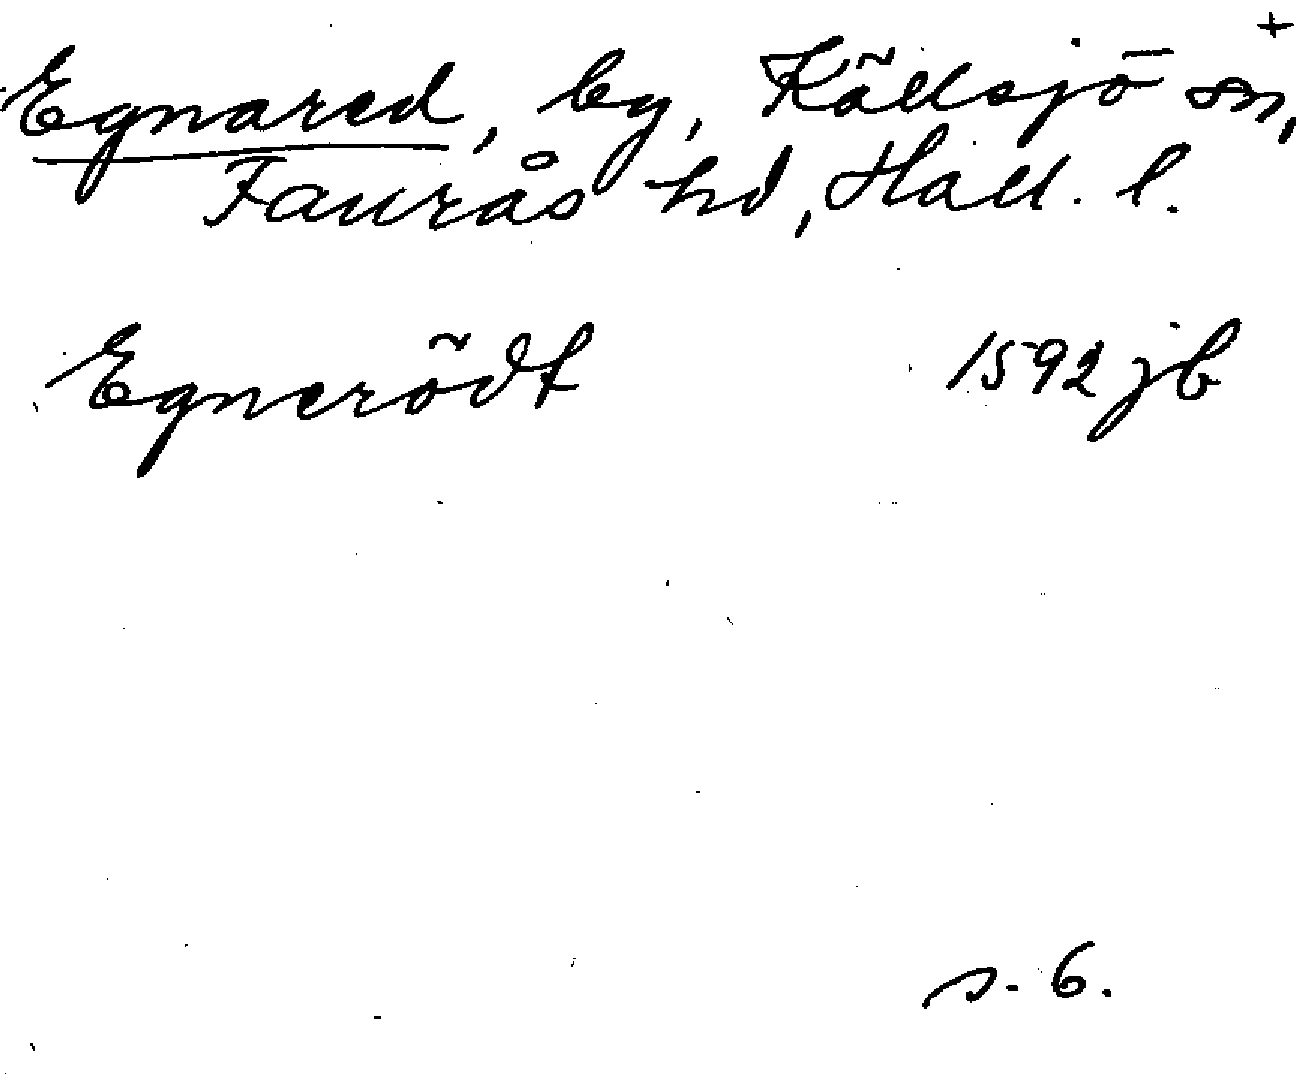 +
Egnared, by, Källsjö sn,
Faurås hd, Hall. l.
Egnerödt 1592 jb
s. 6.